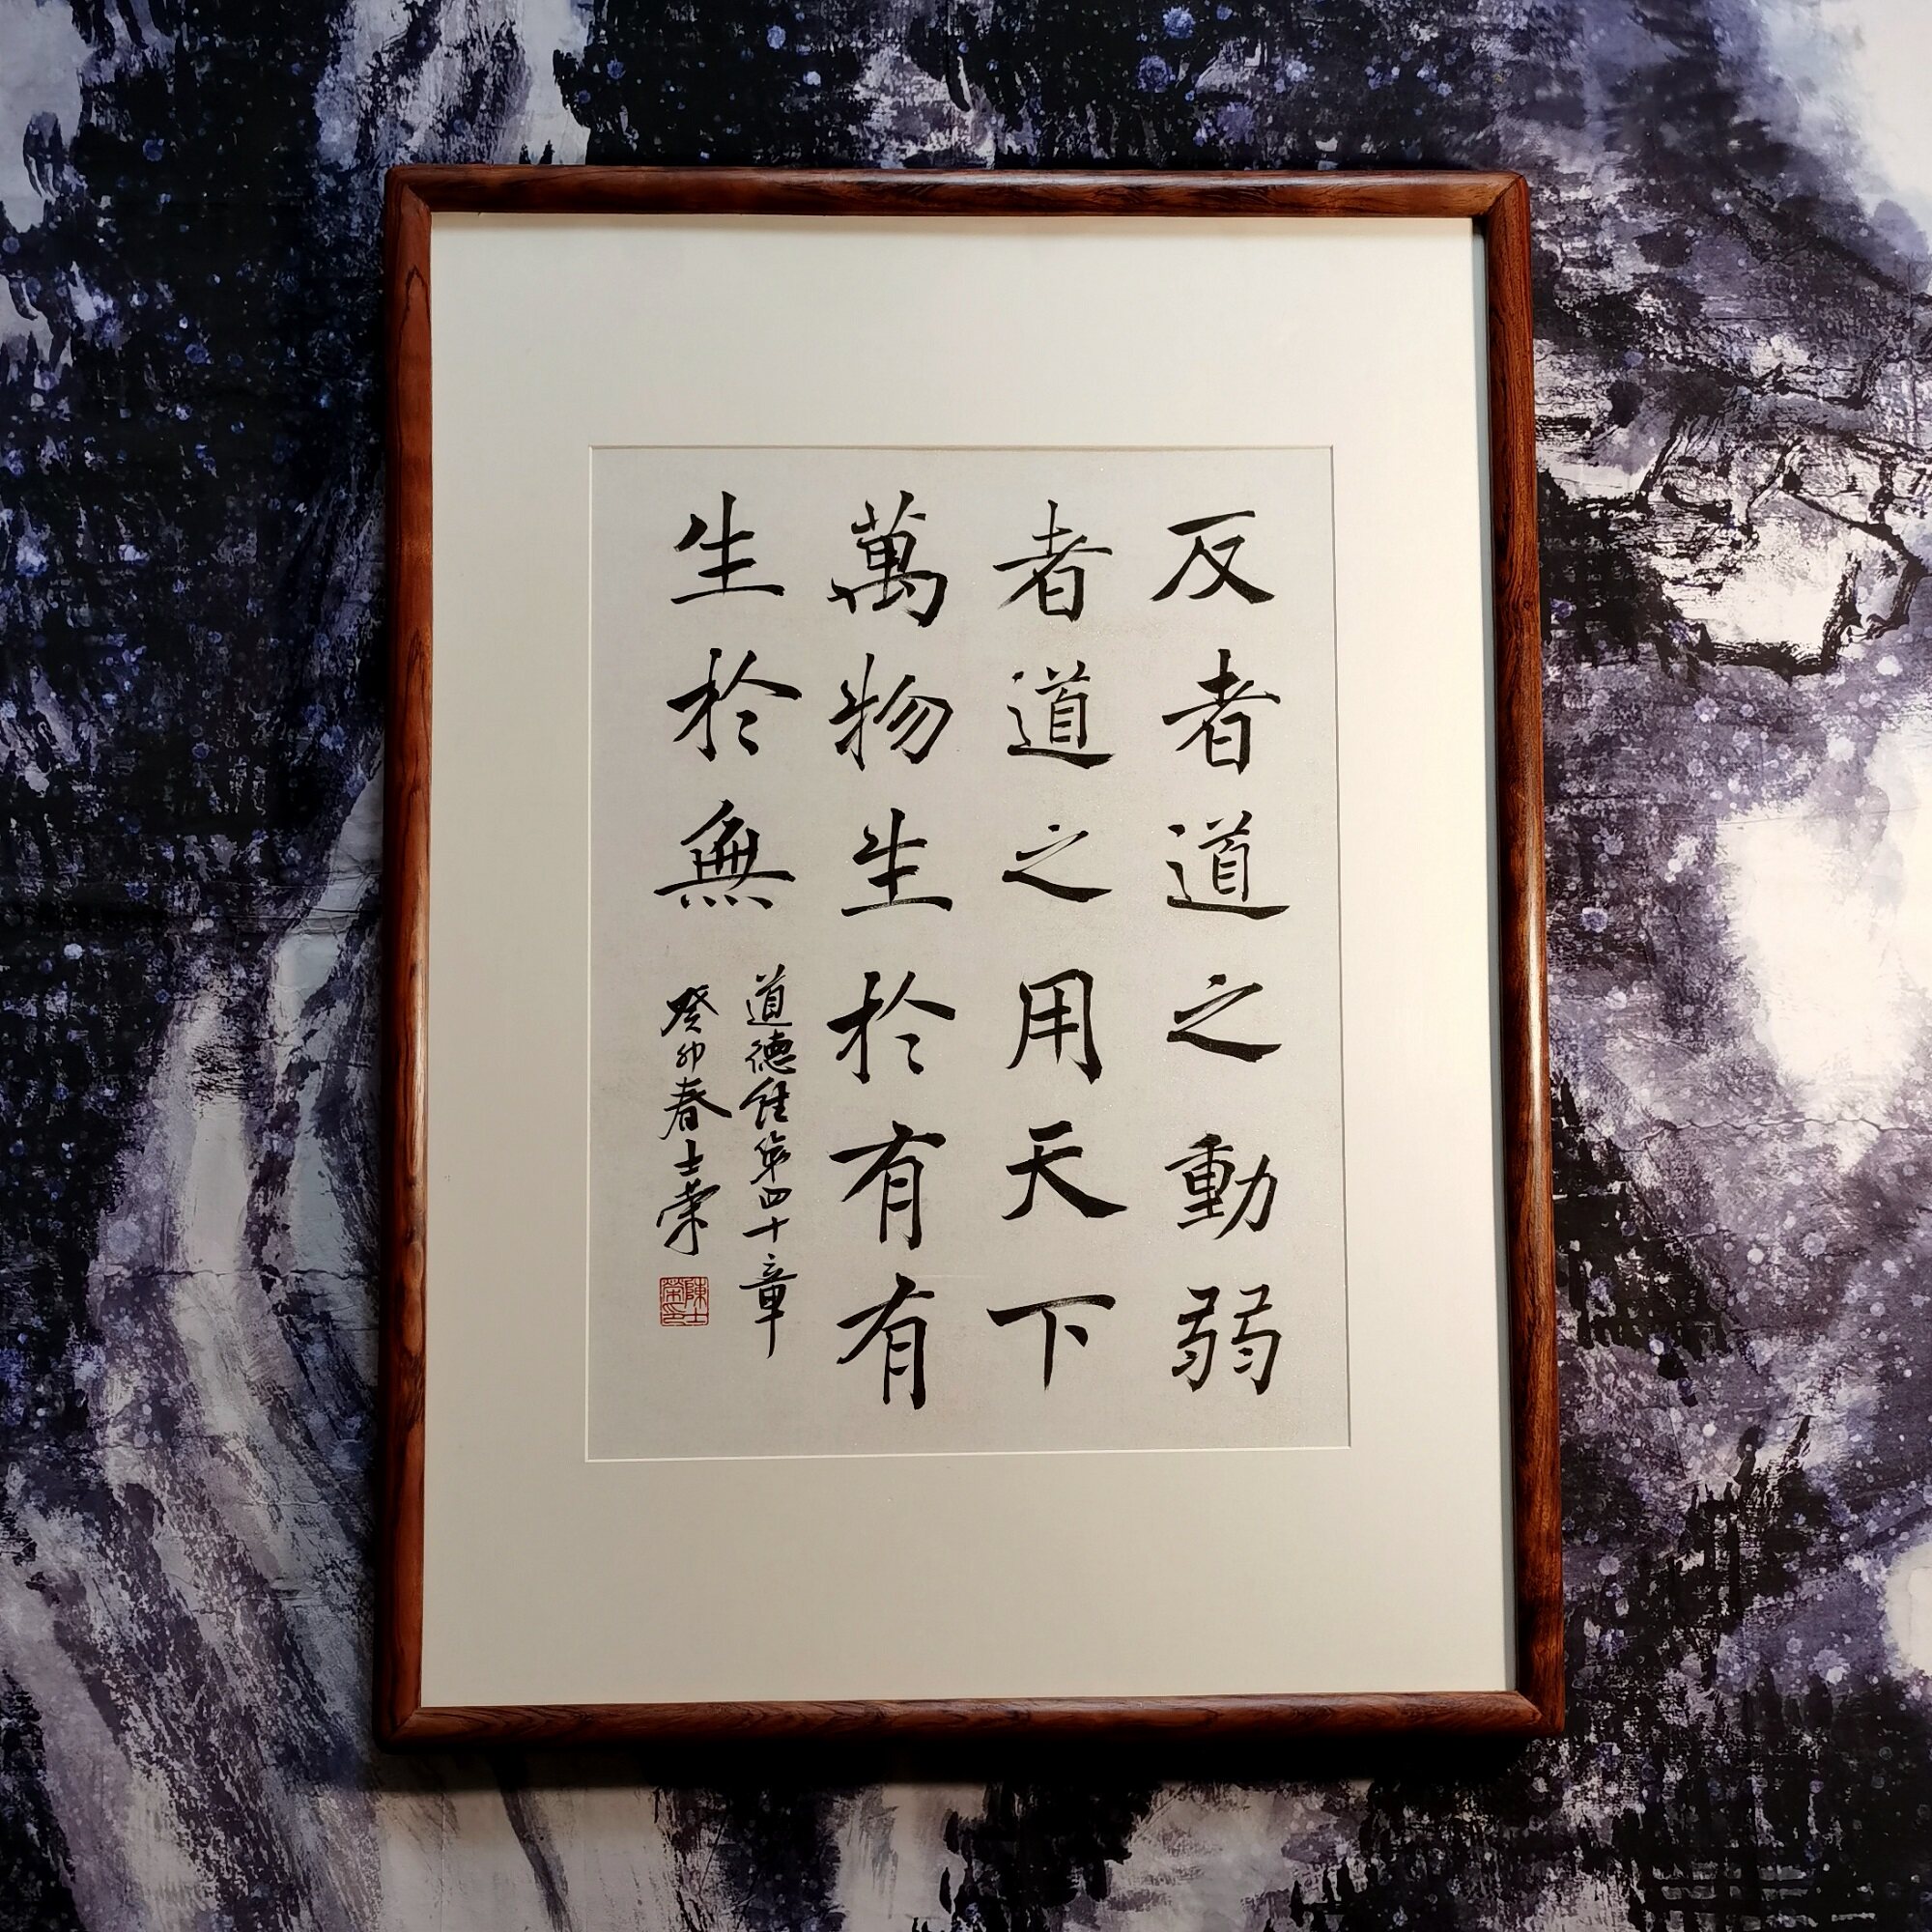 反者道之動弱
者道之用天下
萬物生於有有
生於無
道德經第四十章
癸卯春士榮
陳士榮印